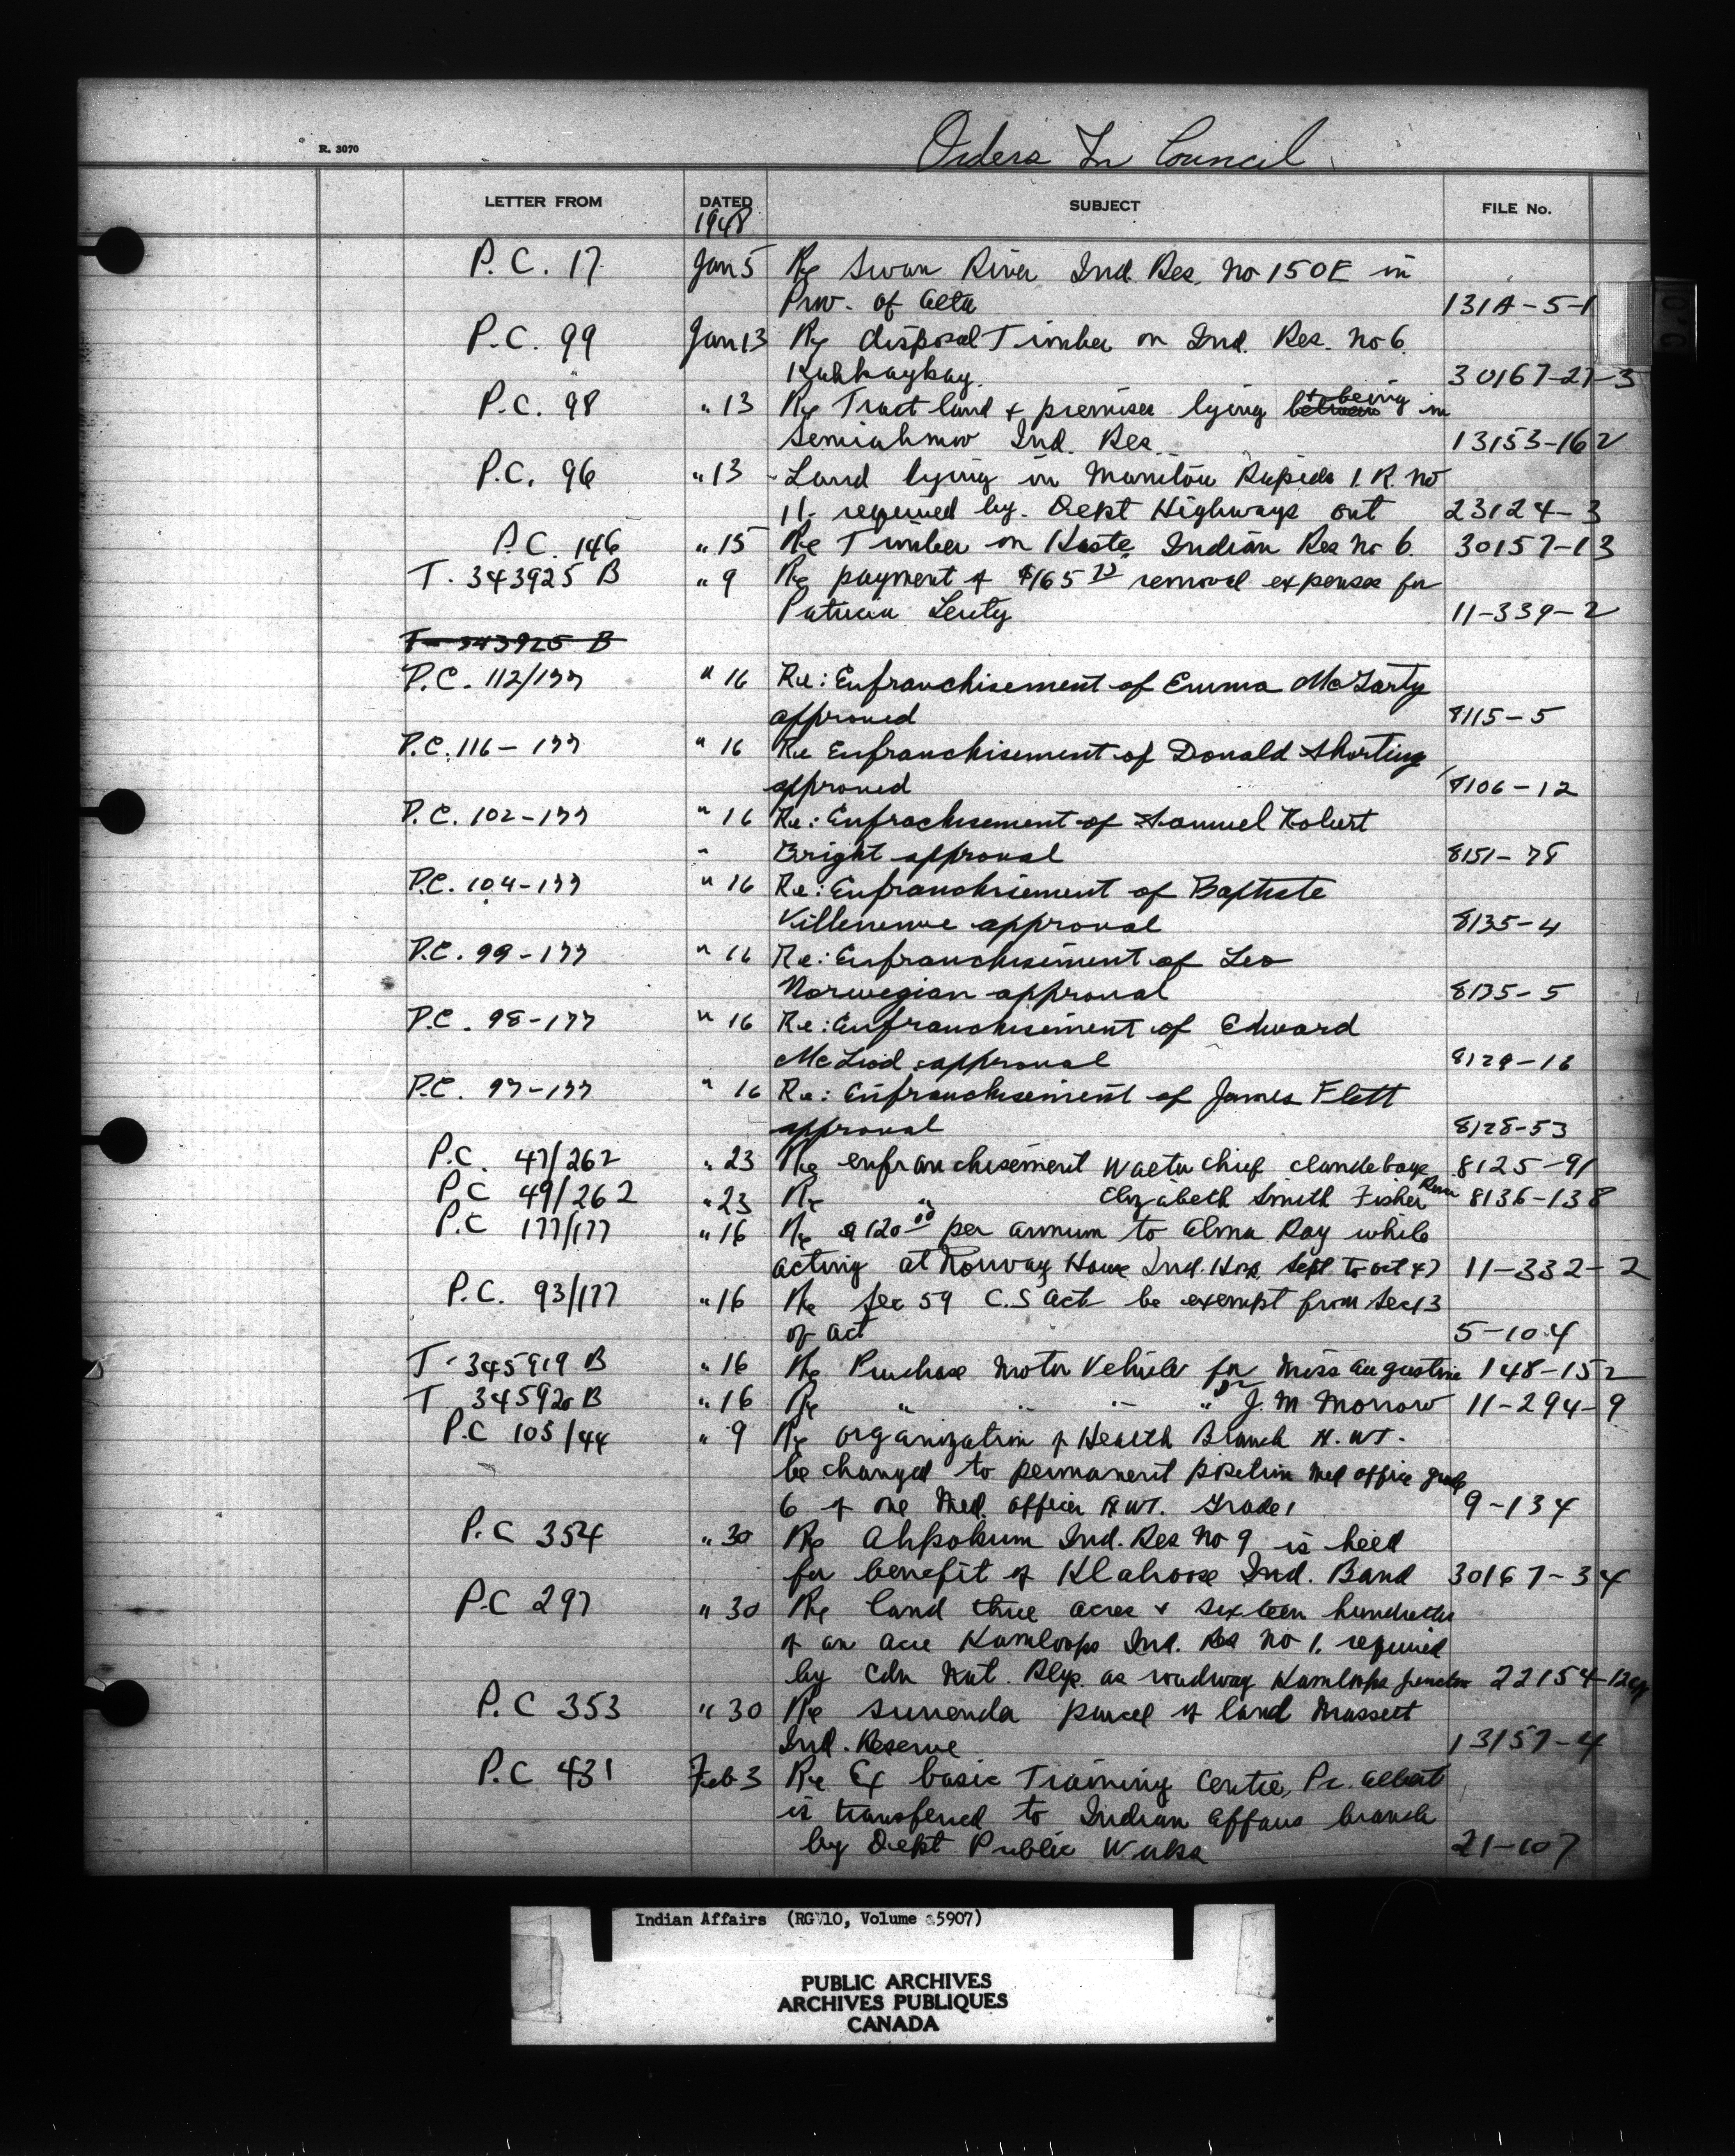 R. 3070
Orders In Council
LETTER FROM DATED SUBJECT FILE No.
1948
P.C. 17 Jan 5 Re Swan River Ind. Res. No 150E in
Prov. of Alta 131A-5-1
P.C. 99 Jan 13 Re disposal Timber on Ind. Res. No 6
Kahkaykay. 30167-27-3
P.C. 98 " 13 Re Tract land & premises lying between & being in
Semiahmoo Ind. Res. 13153-162
P.C. 96 " 13 - Land lying in Manitou Rapids I.R. No
11. required by. Dept Highways Ont 23124-3
P.C. 146 " 15 Re Timber on Indian Res No 6. 30157-13
T. 343925 B " 9 Re payment of $165 removal expenses for
Patricia 11-339-2
T- 343925 B
P.C. 112/177 " 16 Re: Enfranchisement of Emma McLarty
approved 8115-5
P.C. 116-177 " 16 Re Enfranchisement of Donald Shorting
approved 8106-12
P.C. 102-177 " 16 Re: Enfrachisement of Samuel Robert
" Bright approval 8151-78
P.C. 104-177 " 16 Re: Enfranchisement of Baptiste
Villeneuve approval 8135-4
P.C. 99-177 " 16 Re: Enfranchisement of Leo
Norwegian approval 8135-5
P.C. 98-177 " 16 Re: Enfranchisement of Edward
McLeod approval 8129-16
P.C. 97-177 " 16 Re: Enfranchisement of James Flett
approval 8128-53
P.C. 47/262 " 23 Re enfranchisement Chief Clandeboye 8125-91
P.C 49/262 " 23 Re " Elizabeth Smith Fisher River 8136-138
P.C 177/177 " 16 Re $120.00 per annum to Alma Ray while
acting at Norway House Ind. Hosp. Sept to Oct 47 11-332-2
P.C. 93/177 " 16 Re Sec 59 C.S Act be exempt from Sec 13
of act 5-104
T-345919 B " 16 Re Purchase Motor Vehicle for Miss Augustine 148-152
T 345920 B " 16 Re " " " " Dr J.M Morrow 11-294-9
P.C 105/44 " 9 Re organization of Health Branch N.W.T.
be changed to permanent position Med office grade
6 of one Med. officer N.W.T. Grade 1 9-134
P.C 354 " 30 Re Ahpokum Ind. Res No 9 is held
for benefit of Klahoose Ind. Band 30167-34
P.C 297 " 30 Re land three acres & sixteen hundredths
of an acre Kamloops Ind. Res No 1. required
by Cdn Nat. Rlys. as roadway Kamloops junction 22154-12
P.C 353 " 30 Re surrender parcel of land Massett
Ind. Reserve 13157-4
P.C 431 Feb 3 Re Ex basic Training Centre, Pr. Albert
is transferred to Indian Affairs branch
by Dept Public Works 21-107
Indian Affairs (RG 10, Volume 5907)
PUBLIC ARCHIVES
ARCHIVES PUBLIQUES
CANADA